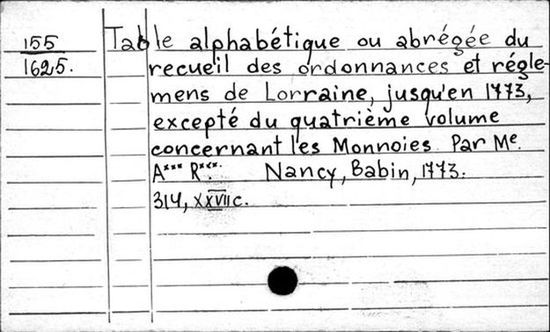 155 Table alphabétique ou abrégée du
1625. recueil des ordonnances et régle-
mens de Lorraine, jusqu'en 1773,
excepté du quatrième volume
concernant les Monnoies Par Me.
A*** R***. Nancy, Babin, 1773.
314, XXVII c.